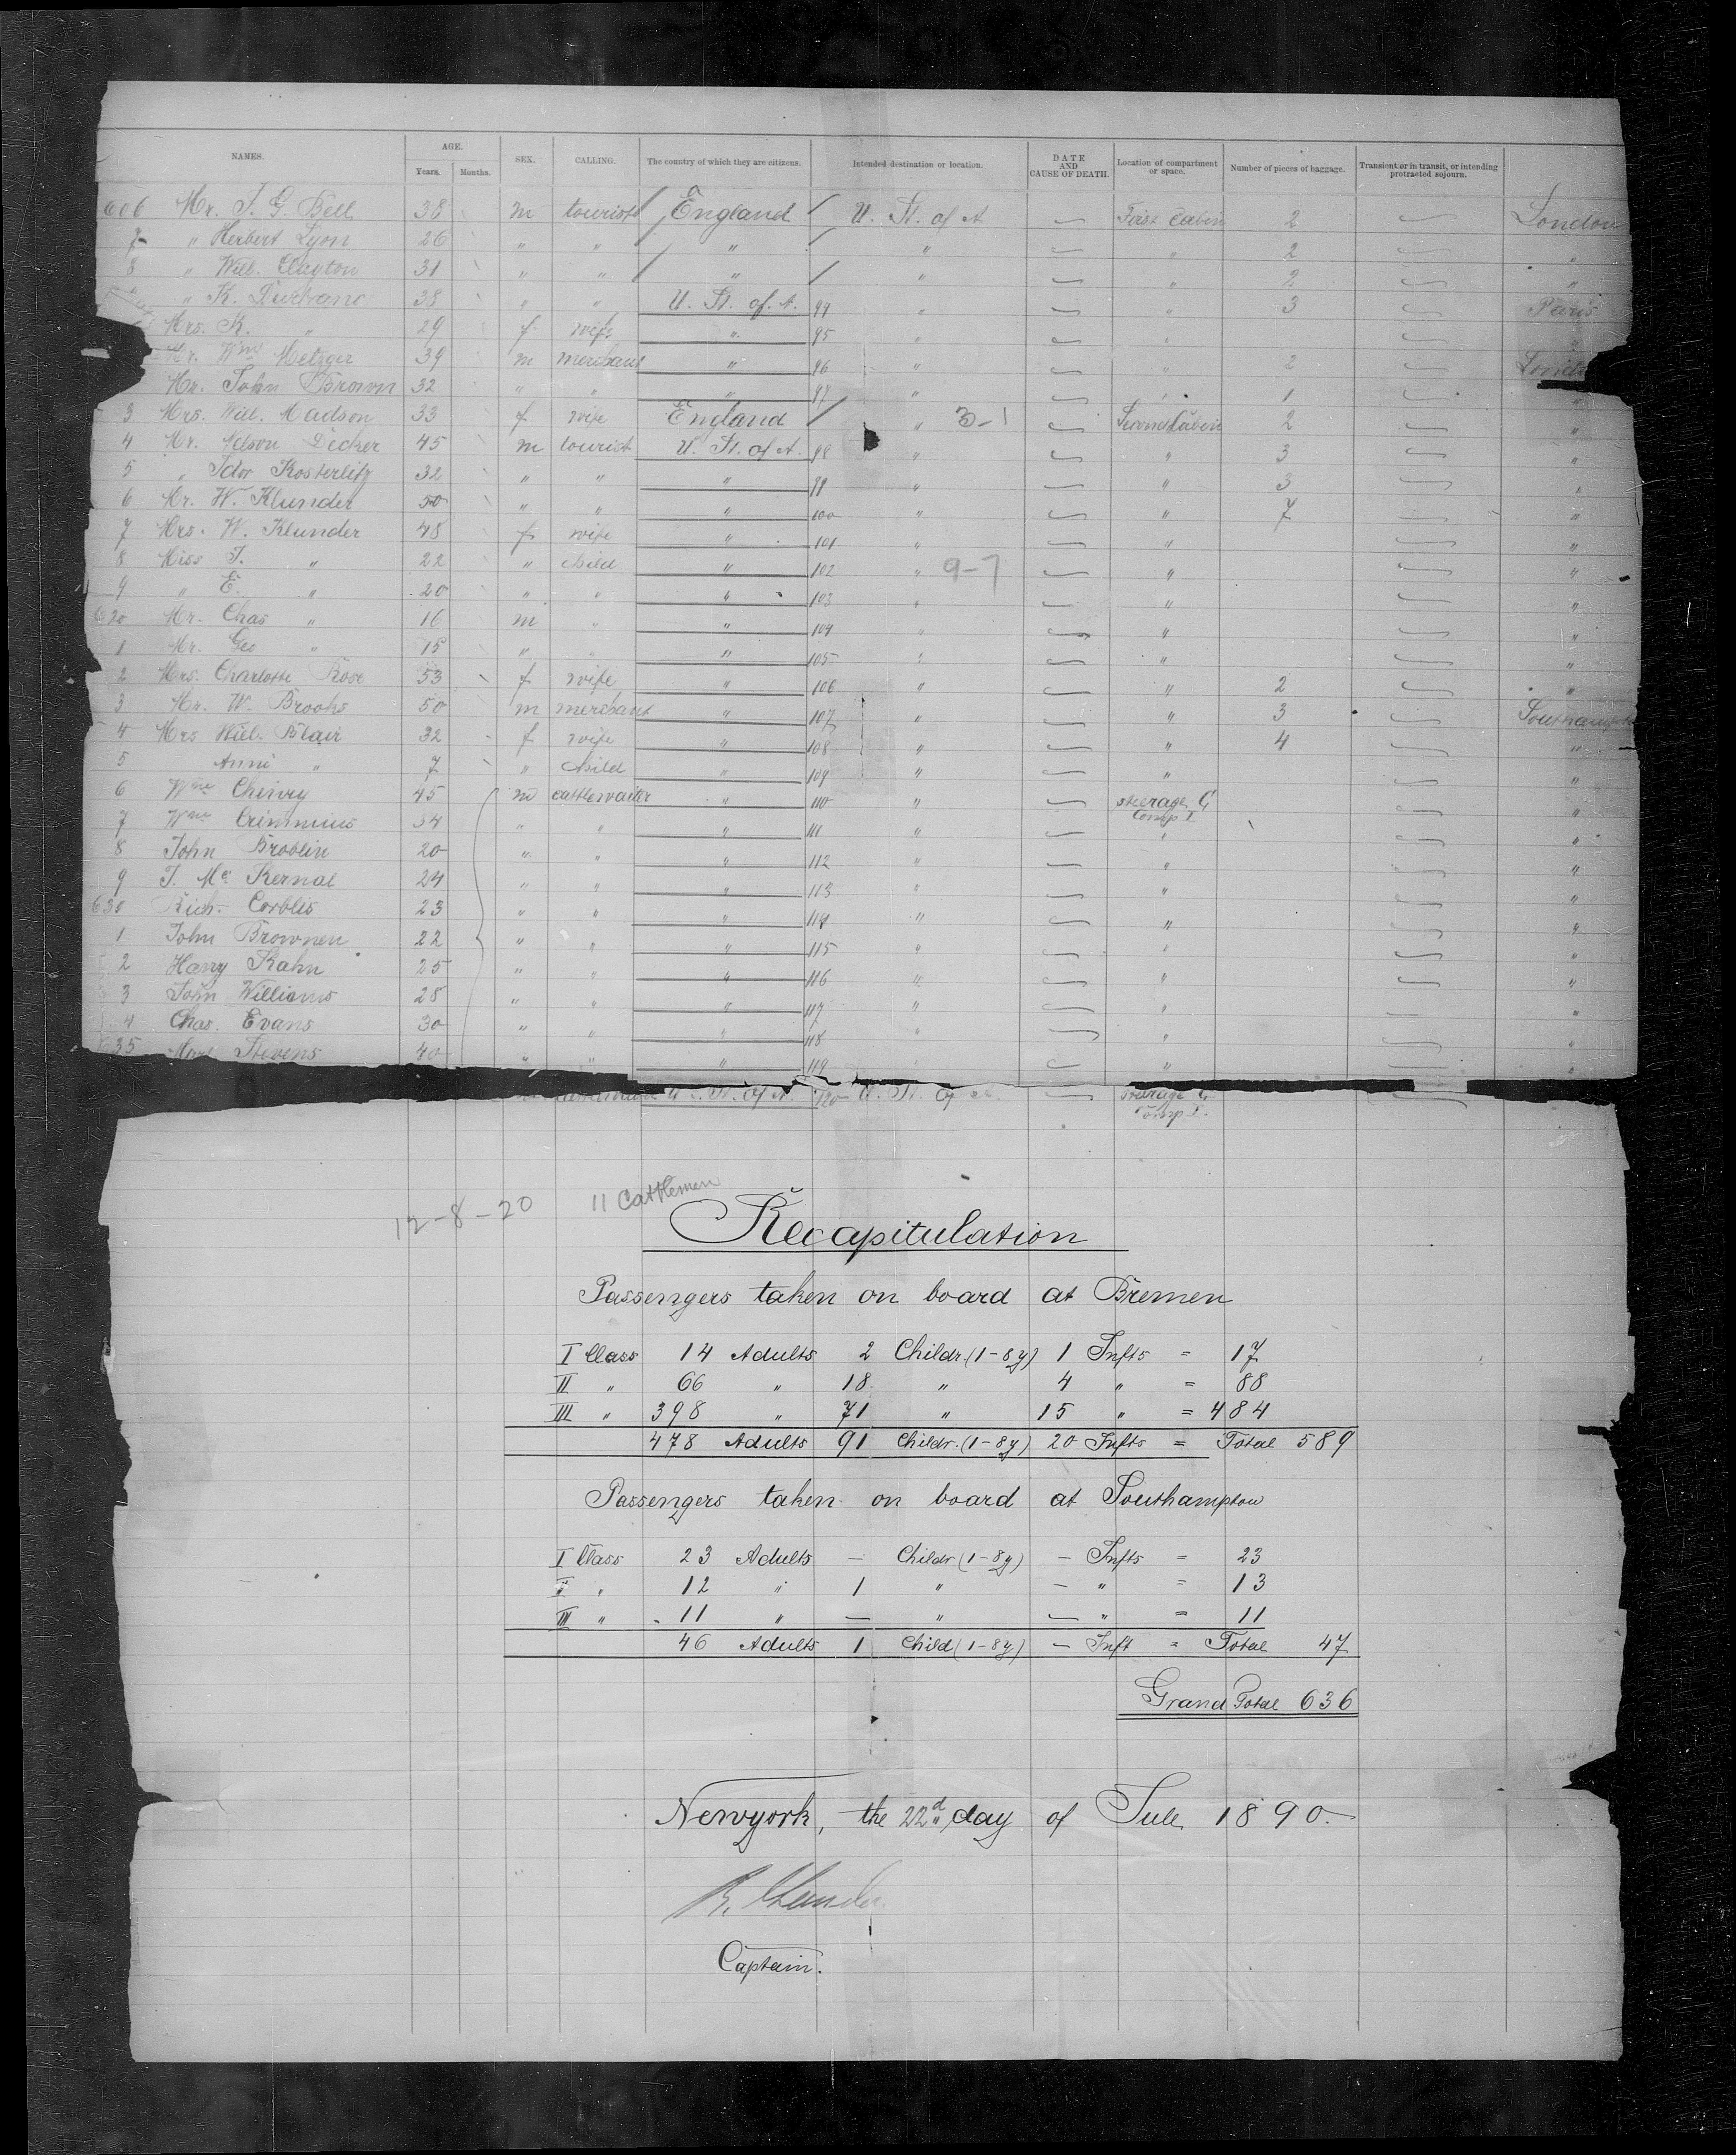 NAMES. AGE. Years. Months. SEX. CALLING. The country of which they are citizens. Intended destination or location. DATE AND CAUSE OF DEATH. Location of compartment or space. Number of pieces of baggage. Transient or in transit, or intending protracted sojourn.
606 Mr. J. G. Bell 38 m tourist England U. St. of A First Cabin 2 London
7 " Herbert Lyon 26 " " " " " 2 "
8 " Will. Clayton 31 " " " " " 2 "
" K. 38 " " U. St. of. A. 94 " " 3 Paris
Mrs. K. " 29 f wife " 95 " " "
Mr. Wm Metzger 39 m merchant " 96 " " 2 London
Mr. John Brown 32 " " " 97 " " 1 "
3 Mrs. Will. Madson 33 f wife England " 3-1 Second Cabin 2 "
4 Mr. Nelson Decker 45 m tourist U. St. of A. 98 " " 3 "
5 " Idor Kosterlitz 32 " " " 99 " " 3 "
6 Mr. W. Klunder 50 " " " 100 " " 7 "
7 Mrs. W. Klunder 48 f wife " 101 " " "
8 Miss J. " 22 " child " 102 " 9-7 " "
9 " E. " 20 " " " 103 " " "
620 Mr. Chas " 16 m " " 104 " " "
1 Mr. Geo " 15 " " " 105 " " "
2 Mrs. Charlotte Rose 53 f wife " 106 " " 2 "
3 Mr. W. Brooks 50 m merchant " 107 " " 3 Southampt
4 Mrs Will. Blair 32 f wife " 108 " " 4 "
5 Anni " 7 " child " 109 " " "
6 Wm Chinry 45 m cattlewaiter " 110 " steerage G Comp I "
7 Wm Crimmins 34 " " " 111 " " "
8 John Broblin 20 " " " 112 " " "
9 J. Mc Kernal 24 " " " 113 " " "
630 Rich. Corblis 23 " " " 114 " " "
1 John Brownen 22 " " " 115 " " "
2 Harry Kahn 25 " " " 116 " " "
3 John Williams 28 " " " 117 " " "
4 Chas. Evans 30 " " " 118 " " "
635 Stevens 40 " " " 119 " "
U. St. of A. 120 U. St. of A. Steerage G Comp I.
12-8-20 11 Cattlemen
Recapitulation
Passengers taken on board at Bremen
I Class 14 Adults 2 Childr. (1-8y) 1 Infts = 17
II " 66 " 18 " 4 " = 88
III " 398 " 71 " 15 " = 484
478 Adults 91 Childr. (1-8y) 20 Infts = Total 589
Passengers taken on board at Southampton
I Class 23 Adults — Childr (1-8y) — Infts = 23
II " 12 " 1 " — " = 13
III " 11 " — " — " = 11
46 Adults 1 Child (1-8y) — Inft = Total 47
Grand Total 636
Newyork, the 22d day of Jule 1890.
Captain.